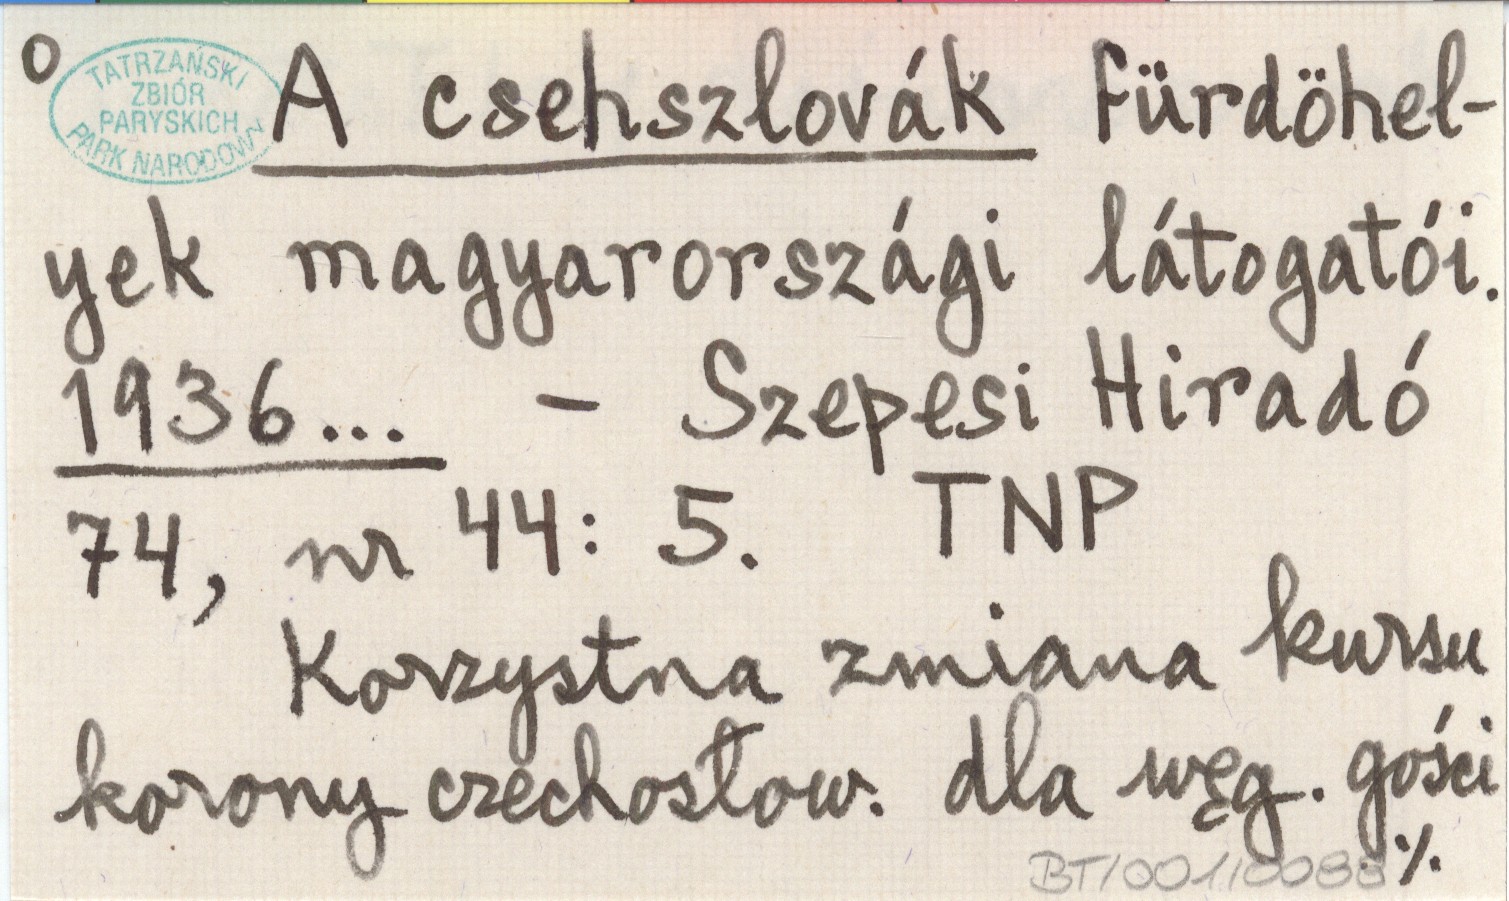 o
TATRZAŃSKI
ZBIÓR
PARYSKICH
PARK NARODOWY
A csehszlovák fürdöhel-
yek magyarországi látogatói.
1936... - Szepesi Hiradó
74, nr 44: 5. TNP
Korzystna zmiana kursu
korony czechosłow. dla węg. gości
BT/001/0088 ./.